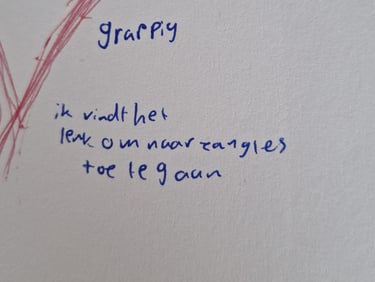 grappig
ik vindt het
leuk om naar zangles
toe te gaan